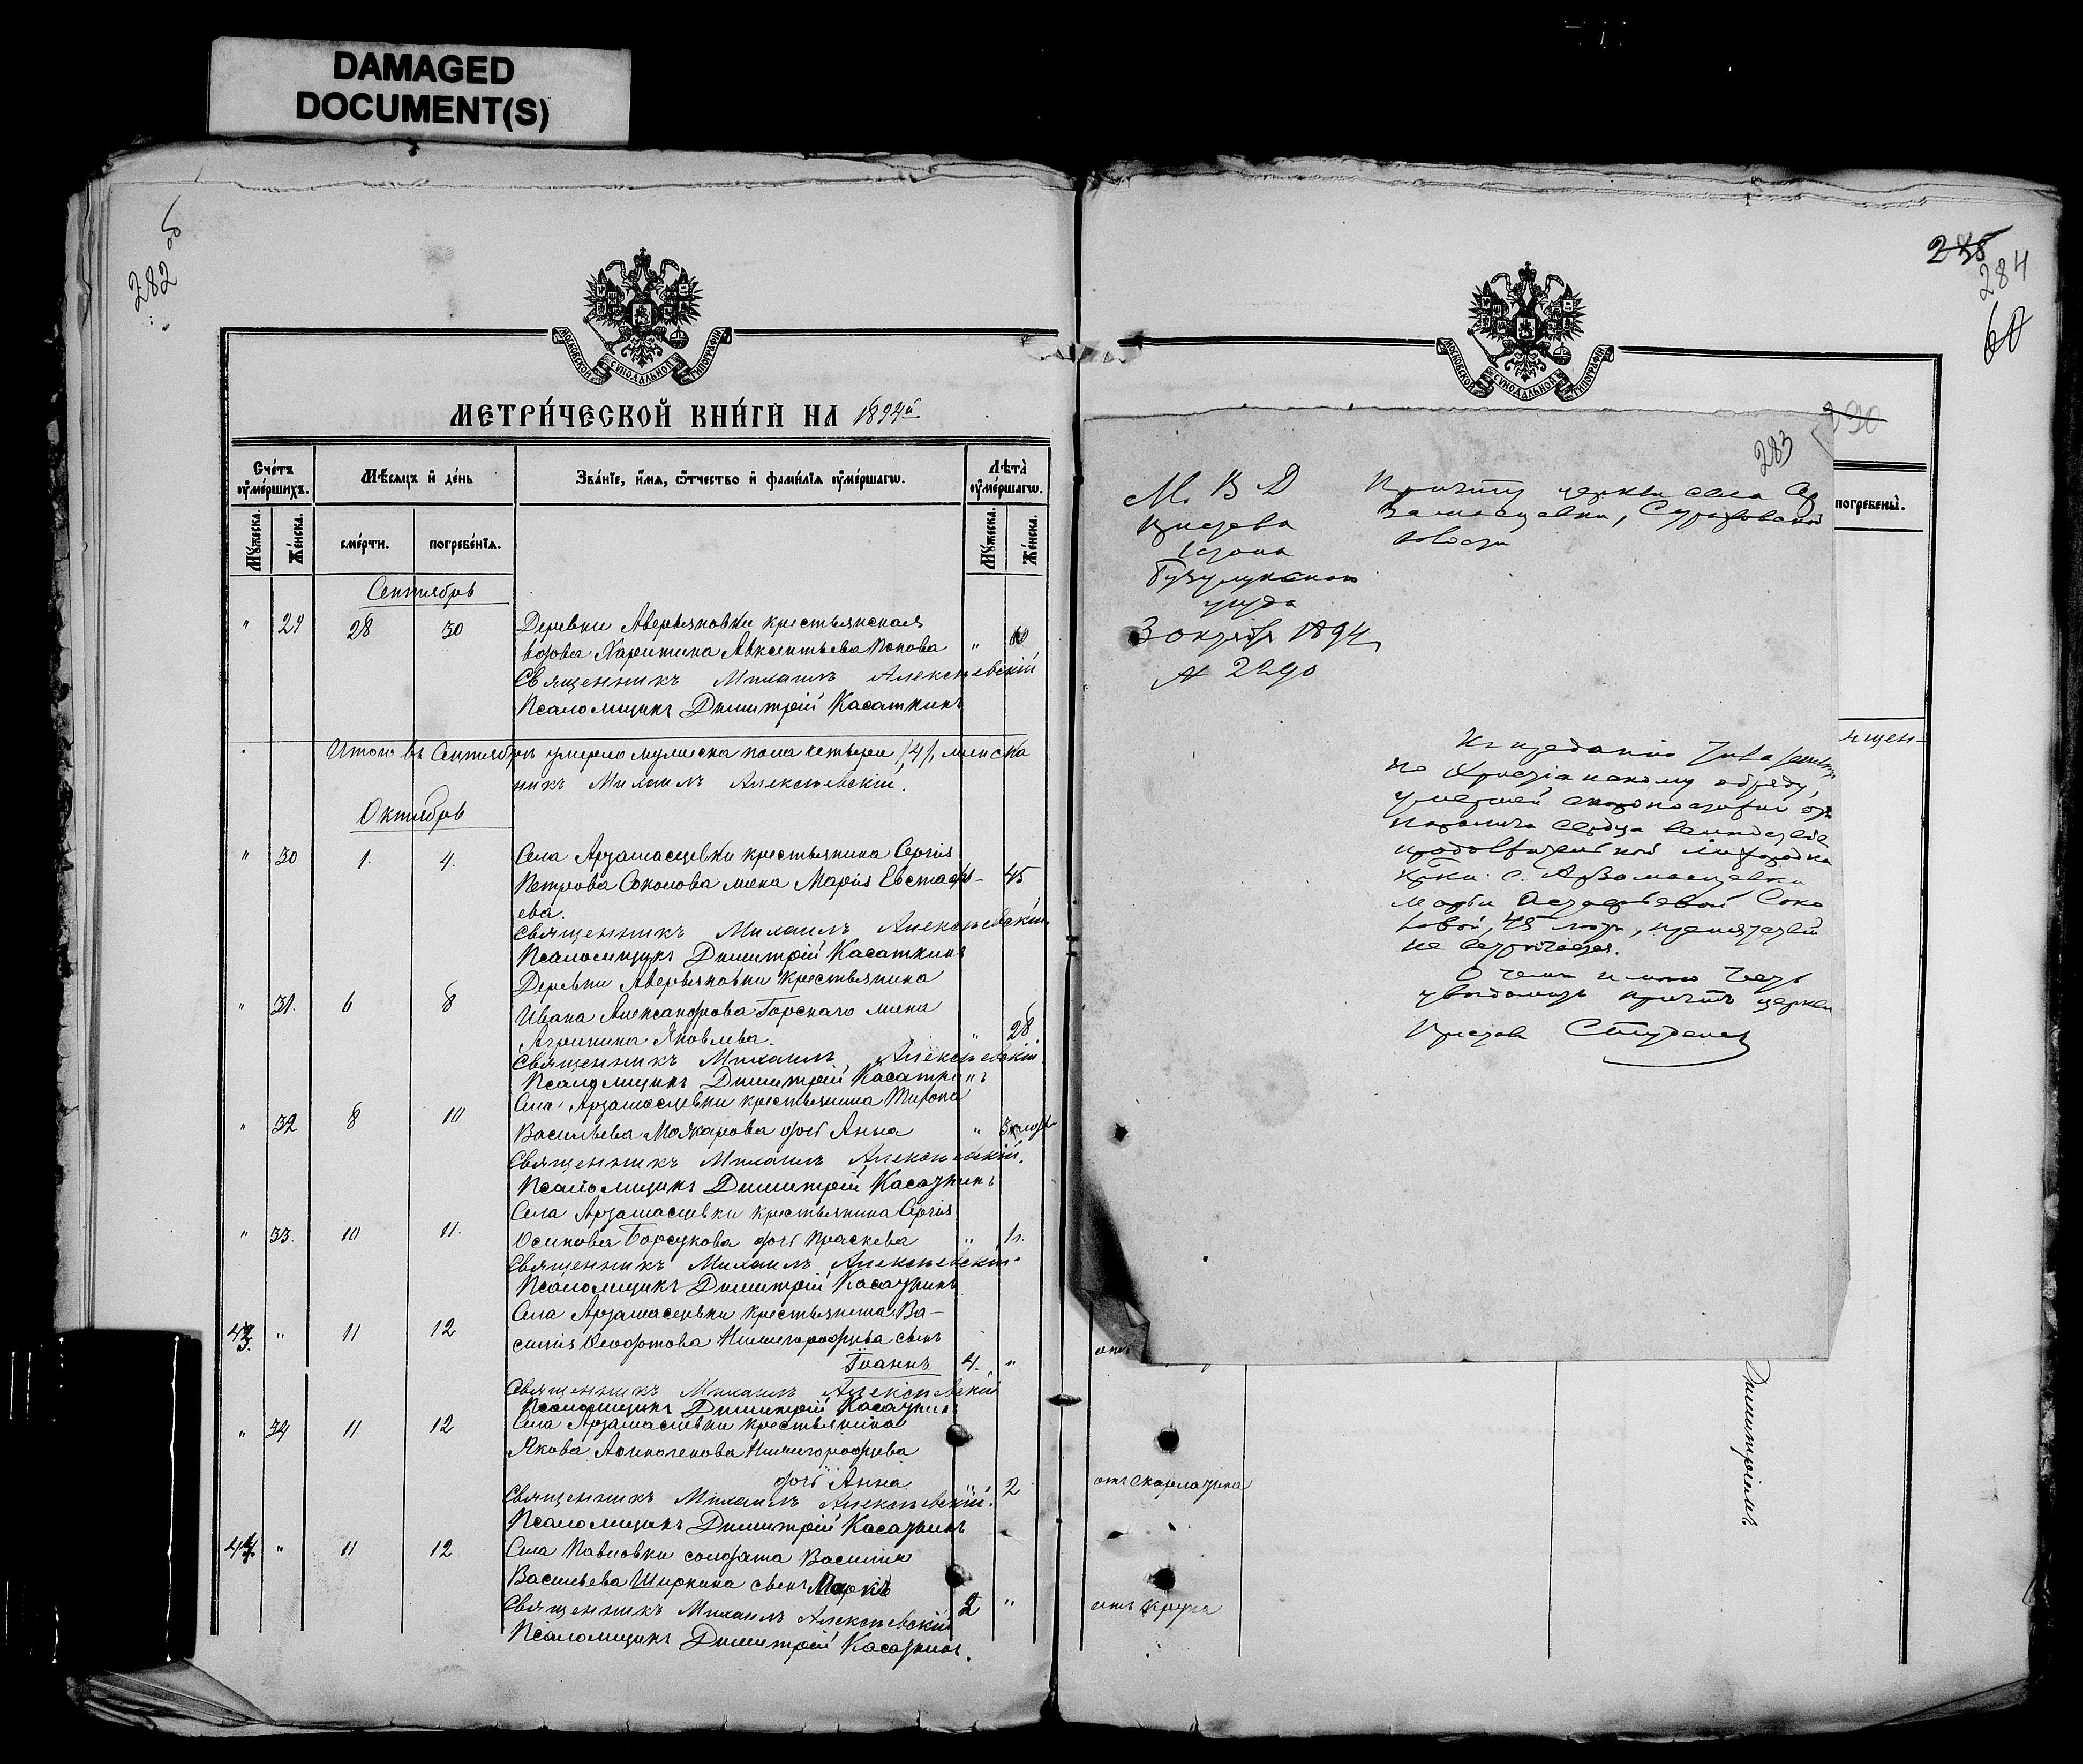 DAMAGED
DOCUMENT(S)
282 об
МОСКОВСКОЙ СУНОДАЛЬНОЙ ТИПОГРАФІИ
МЕТРИ́ЧЕСКОЙ КНИ́ГИ НА 1894й
Сче́тъ ᲂу҆ме́ршихъ.
Мѣ́сяцъ и҆ де́нь
Зва́нїе, и҆́мя, ѻ҆́тчество и҆ фами́лїя ᲂу҆ме́ршагѡ.
Лѣта̀ ᲂу҆ме́ршагѡ.
Мꙋ́жеска.
Же́нска.
сме́рти.
погребе́нїя.
Мꙋ́жеска.
Же́нска.
Сентябрь
" 29 28 30 Деревни Аверьяновки крестьянская
вдова Харитина Авксентьева Попова " 60
Священникъ Михаилъ Алексѣевскій
Псаломщикъ Димитрій Касаткинъ
Итого въ Сентябрѣ умерло мужеска пола четверо /4/, женска
никъ Михаилъ Алексѣевскій.
Октябрь
" 30 1. 4. Села Арзамасцевки крестьянина Сергія
Петрова Соколова жена Марія Евстафь- 45
ева.
Священникъ Михаилъ Алексѣевскій
Псаломщикъ Димитрій Касаткинъ
Деревни Аверьяновки крестьянина
" 31. 6 8 Ивана Александрова Горскаго жена
Агрипина Яковлева. " 28
Священникъ Михаилъ Алексѣевскій
Псаломщикъ Димитрій Касаткинъ
Села Арзамасцевки крестьянина
" 32 8 10 Васильева Можарова дочь Анна "
Священникъ Михаилъ Алексѣевскій.
Псаломщикъ Димитрій Касаткинъ
Села Арзамасцевки крестьянина Сергія
" 33. 10 11. Осипова Борсукова дочь Праскева " 1г.
Священникъ Михаилъ Алексѣевскій
Псаломщикъ Димитрій Касаткинъ
Села Арзамасцевки крестьянина Ва-
43. " 11 12 силія Нижегородцева сынъ
Іоаннъ 4. "
Священникъ Михаилъ Алексѣевскій
Псаломщикъ Димитрій Касаткинъ
Села Арзамасцевки крестьянина
" 34 11 12 Якова Нижегородцева
дочь Анна " 2
Священникъ Михаилъ Алексѣевскій.
Псаломщикъ Димитрій Касаткинъ
44. " 11 12 Села Павловки солдата Василія
Васильева Ширкина сынъ Маркъ
Священникъ Михаилъ Алексѣевскій 2 "
Псаломщикъ Димитрій Касаткинъ.
284
МОСКОВСКОЙ СУНОДАЛЬНОЙ ТИПОГРАФІИ
290
283
погребены̀.
М. В Д
Пристава
стана
Бузулукскаго
уѣзда
3 октября 1894
№ 2290
Причту церкви села Ар
замасцевки,
волости
ящен-
Къ преданію
по христіанскому обряду,
умершей скоропостижно отъ
паралича сердца вслѣдствіе
продолжительной лихорадки
кр-ки с. Арзамасцевки
Марьи Астафьевой Соко
ловой, 45 лѣтъ, препятствій
не встрѣчается.
О чемъ имѣю честь
увѣдомить причтъ церкви
Приставъ
отъ скарлатина
отъ крупа
Димитріемъ